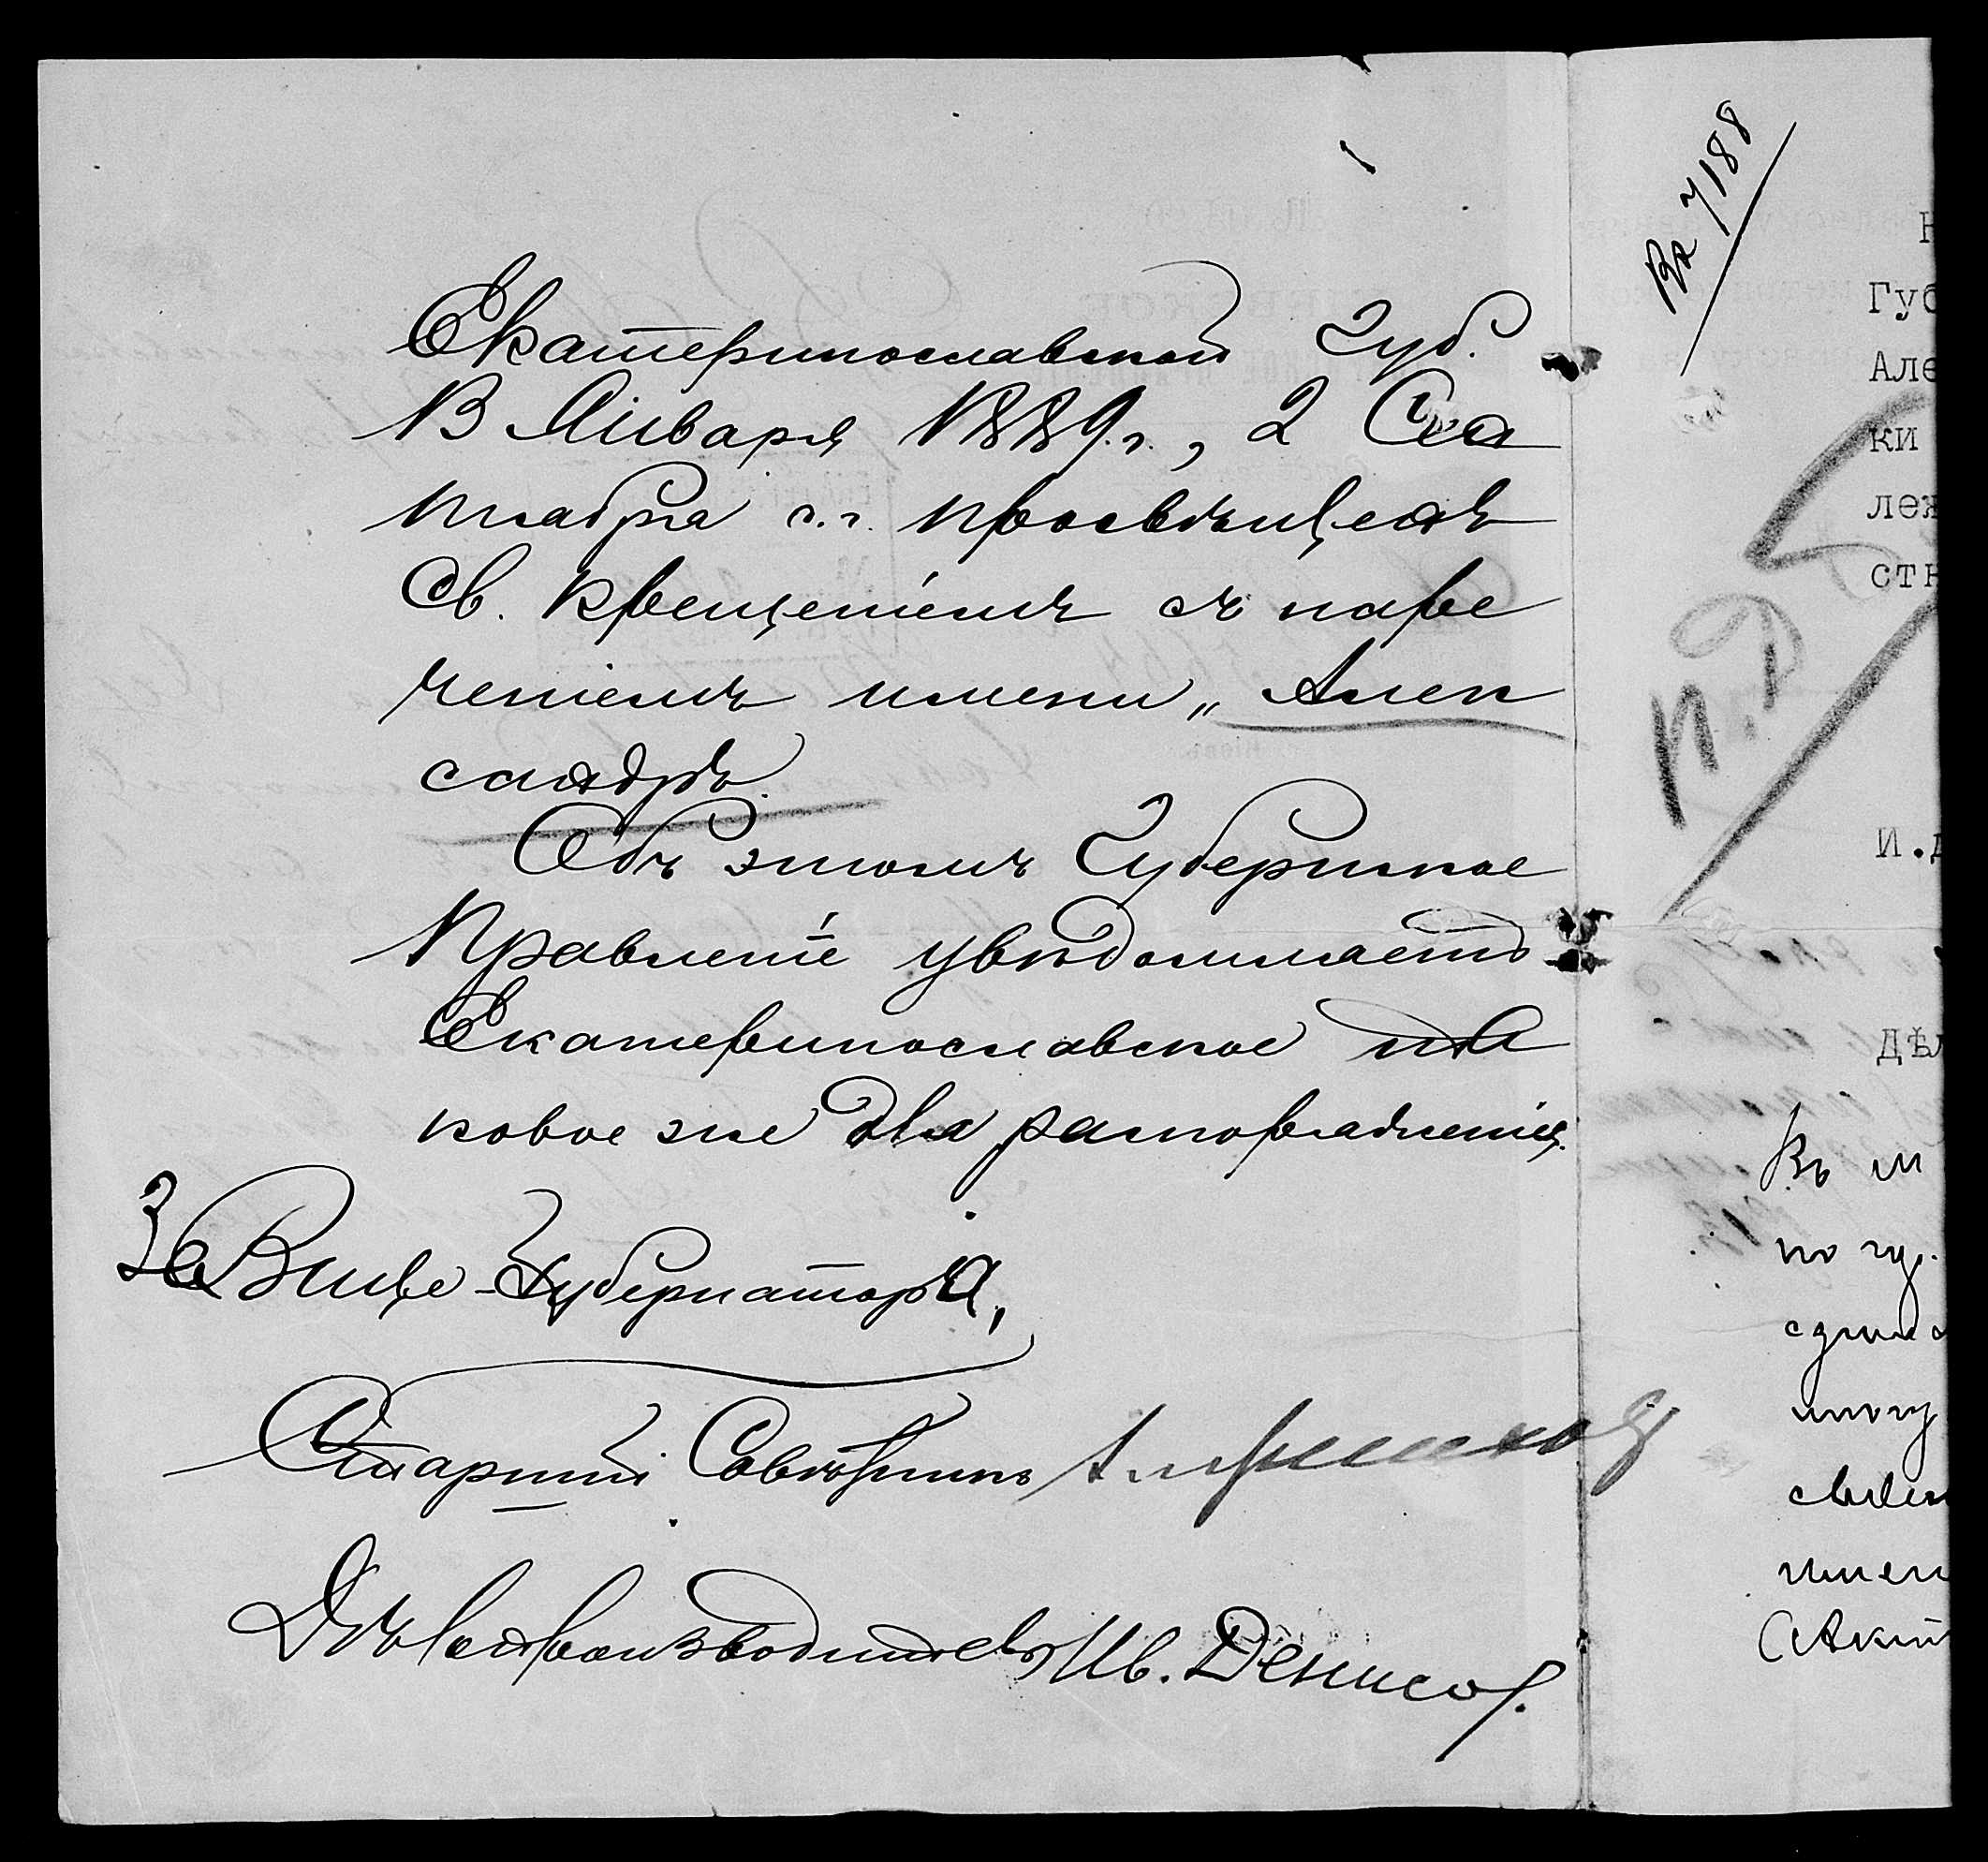 Екатеринославской Губ.
13 Января 1889 г., 2 Сен
тября с.г. просвѣщенъ
Св. Крещеніемъ съ наре
ченіемъ имени „Алек
сандръ.
Объ этомъ Губернское
Правленіе увѣдомляетъ
Екатеринославское та
ковое же для распоряженія.
За Вице-Губернатора,
Старшій Совѣтникъ
Дѣлопроизводитель Ив. Денисов.
Вх 7188
Губ
Але
ки
леж
стн
И.Д
И.д
Дѣл
Въ м
по гу.